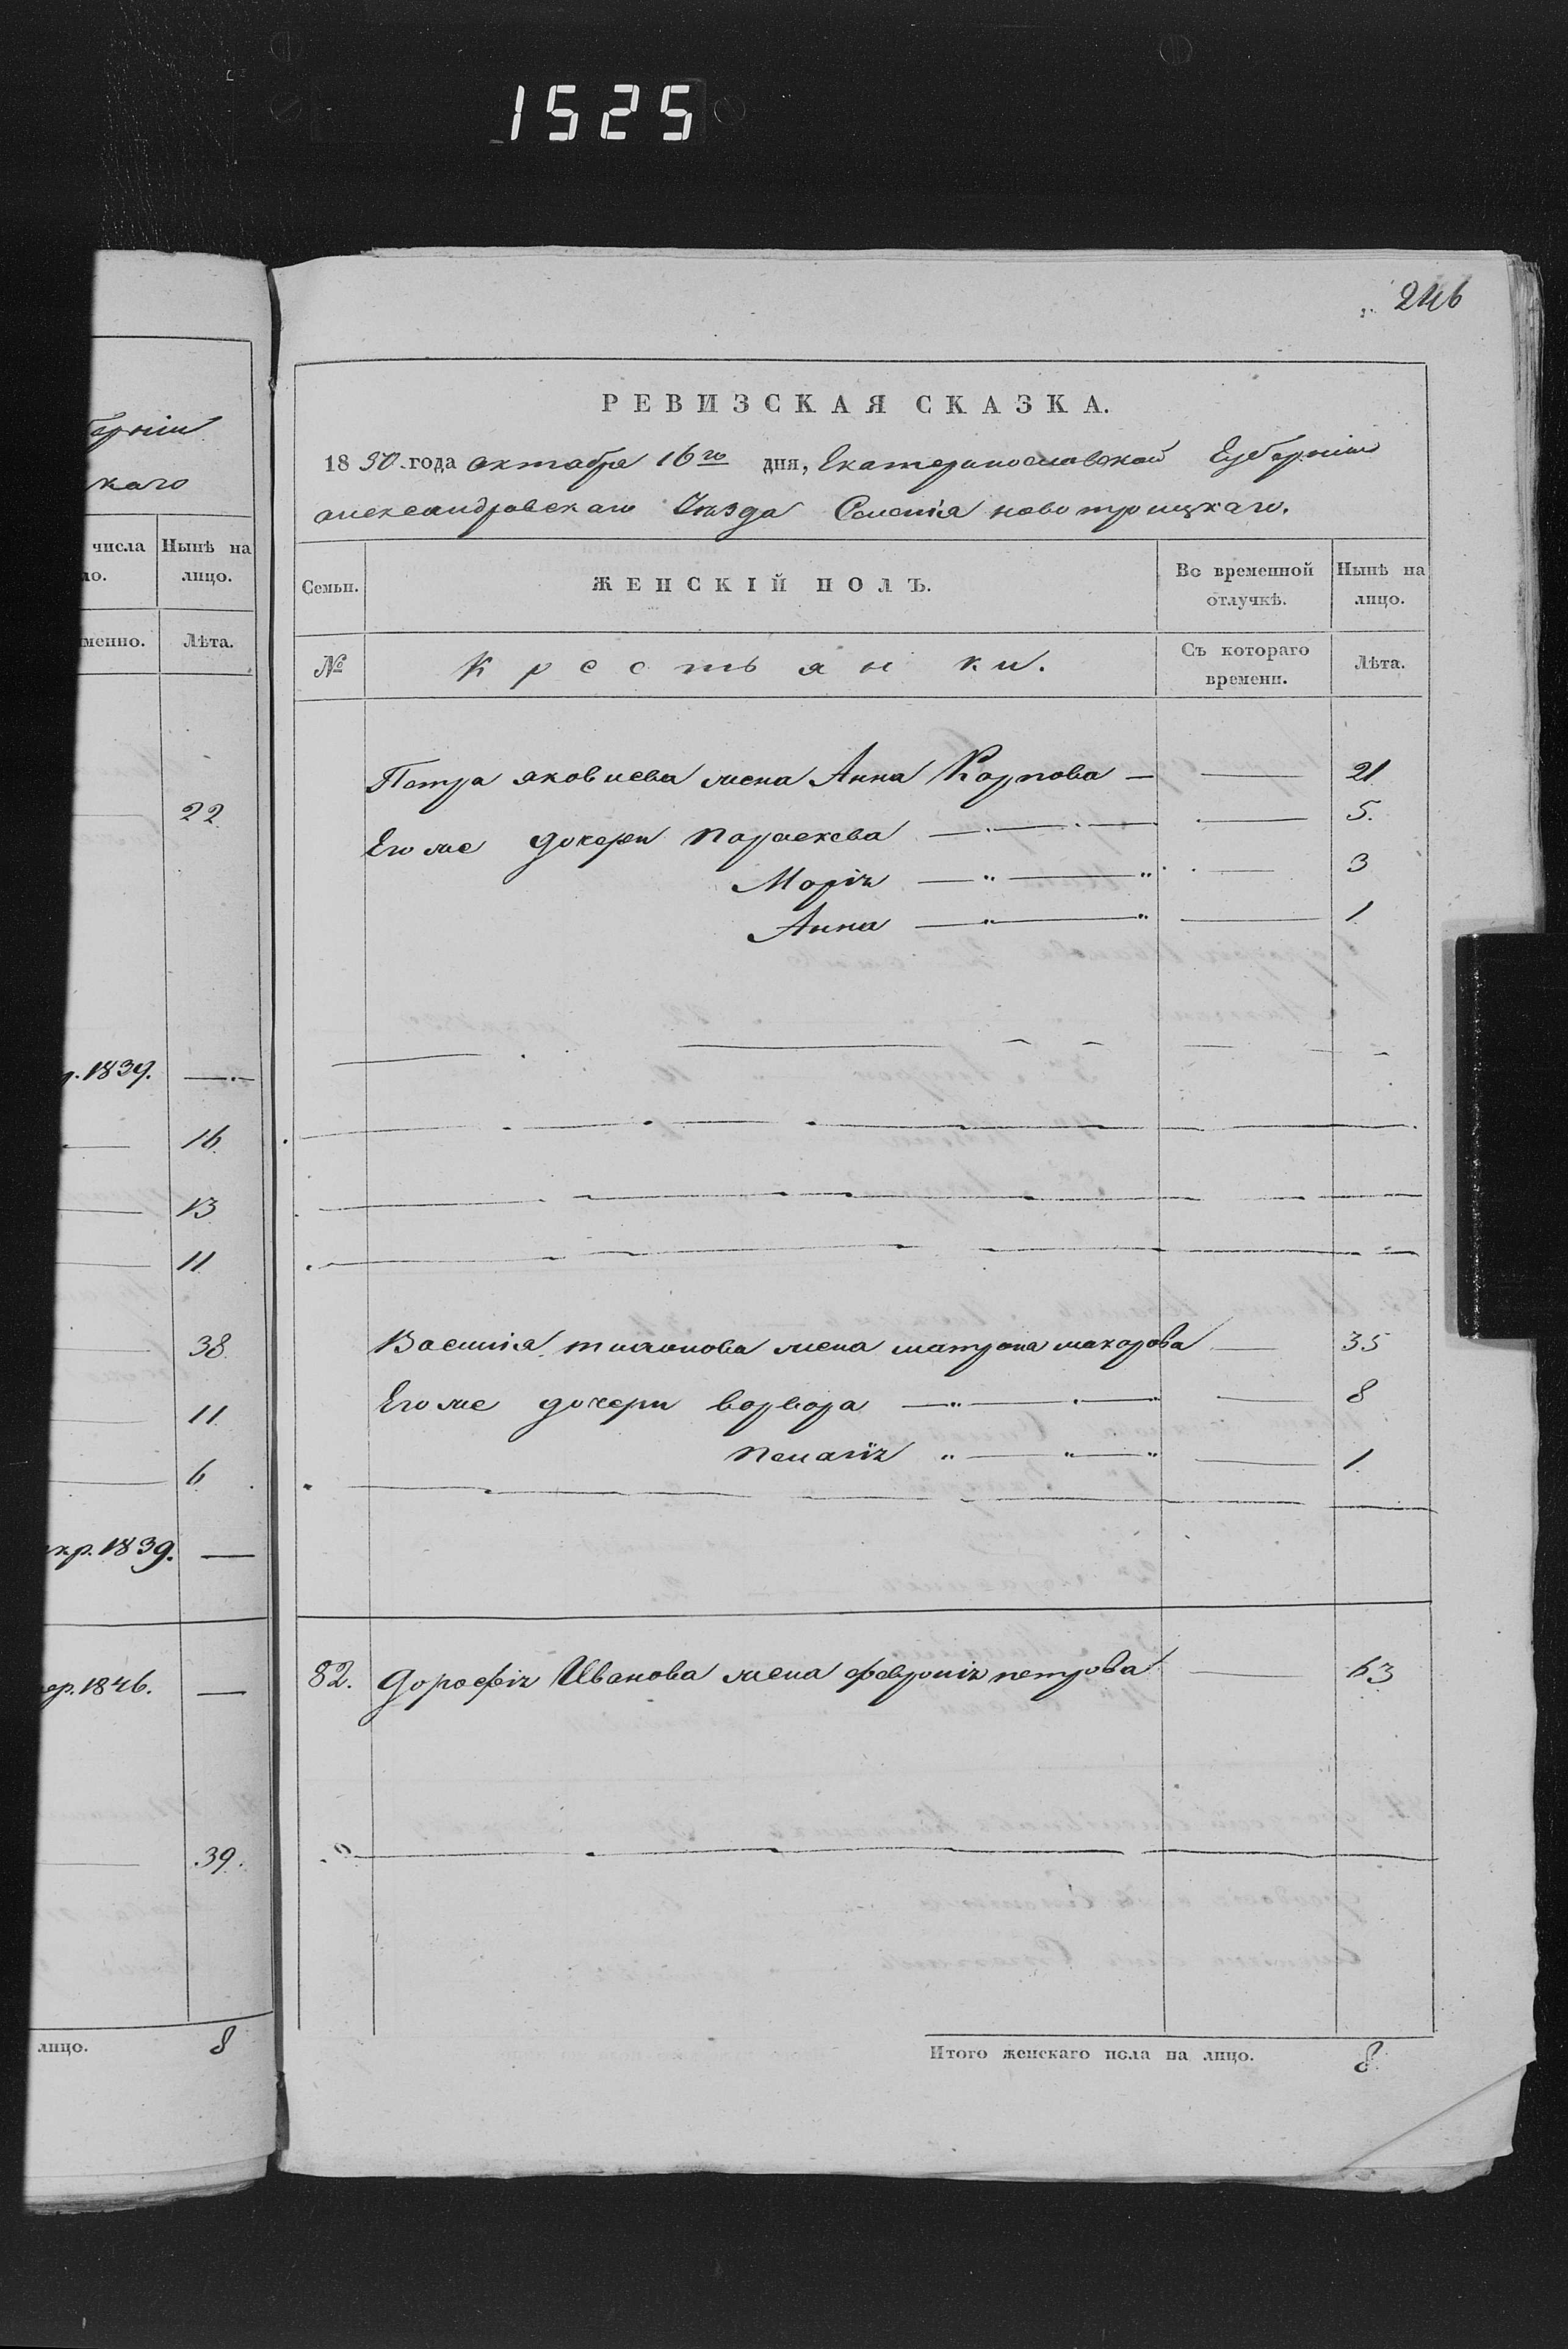 1525
246
РЕВИЗСКАЯ СКАЗКА.
1850 года октабра 16го дня, Екатеринославской Губерніи
александровскаго Уезда Селенія новотроицкаго.
Семьи.
ЖЕНСКІЙ ПОЛЪ.
Во временной отлучкѣ.
Нынѣ на лицо.
№
Крестьянки.
Съ котораго времени.
Лѣта.
Петра яковлева жена Анна Карпова — — 21
Его же дочери параскева — — 5.
Марія — „ — „ — 3
Анна — „ — „ — 1
Василія тихонова жена матрона макарова — 35
Его же дочери варвара — „ — „ — 8
пелагія „ — „ — „ — 1
82. дорофія Иванова жена феврония петрова — 63
Итого женскаго пола на лицо. 8
берніи
каго
числа
ло.
Нынѣ на лицо.
менно.
Лѣта.
22
1839. —
16
13
11
38
11
6
кр. 1839. —
ер. 1846. —
39.
лицо. 8